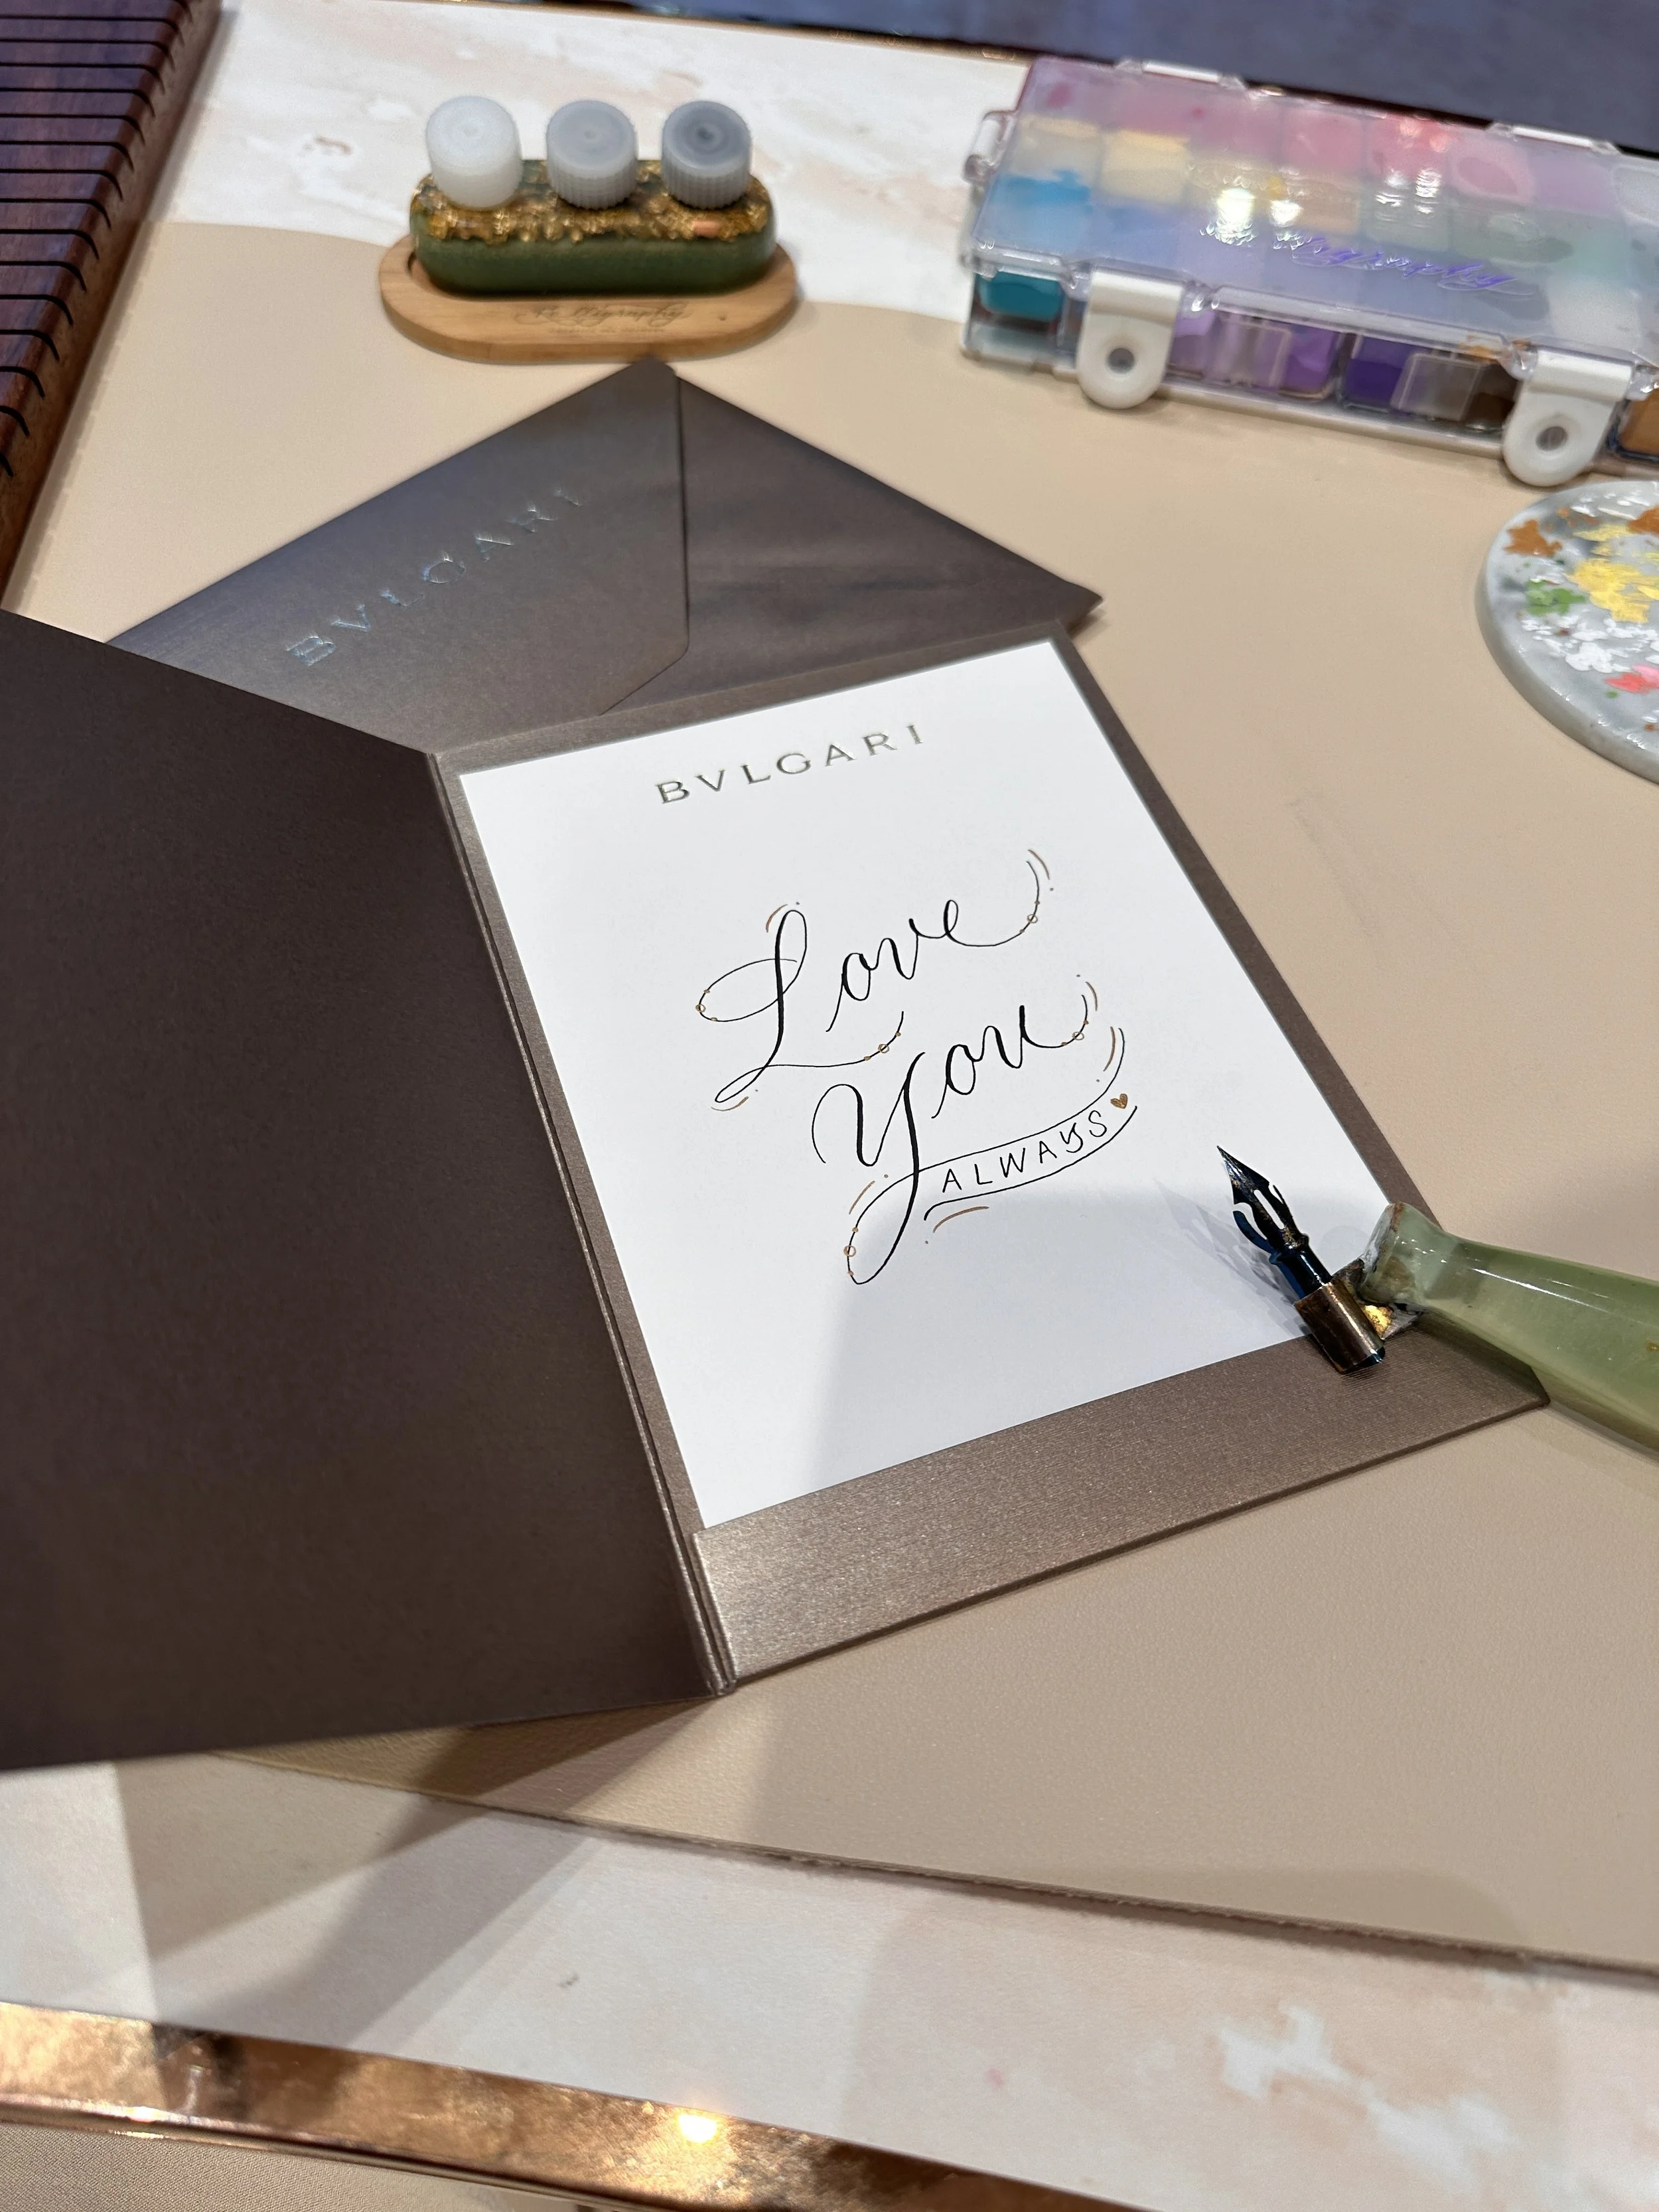 BVLGARI
BVLGARI
Love
You
ALWAYS